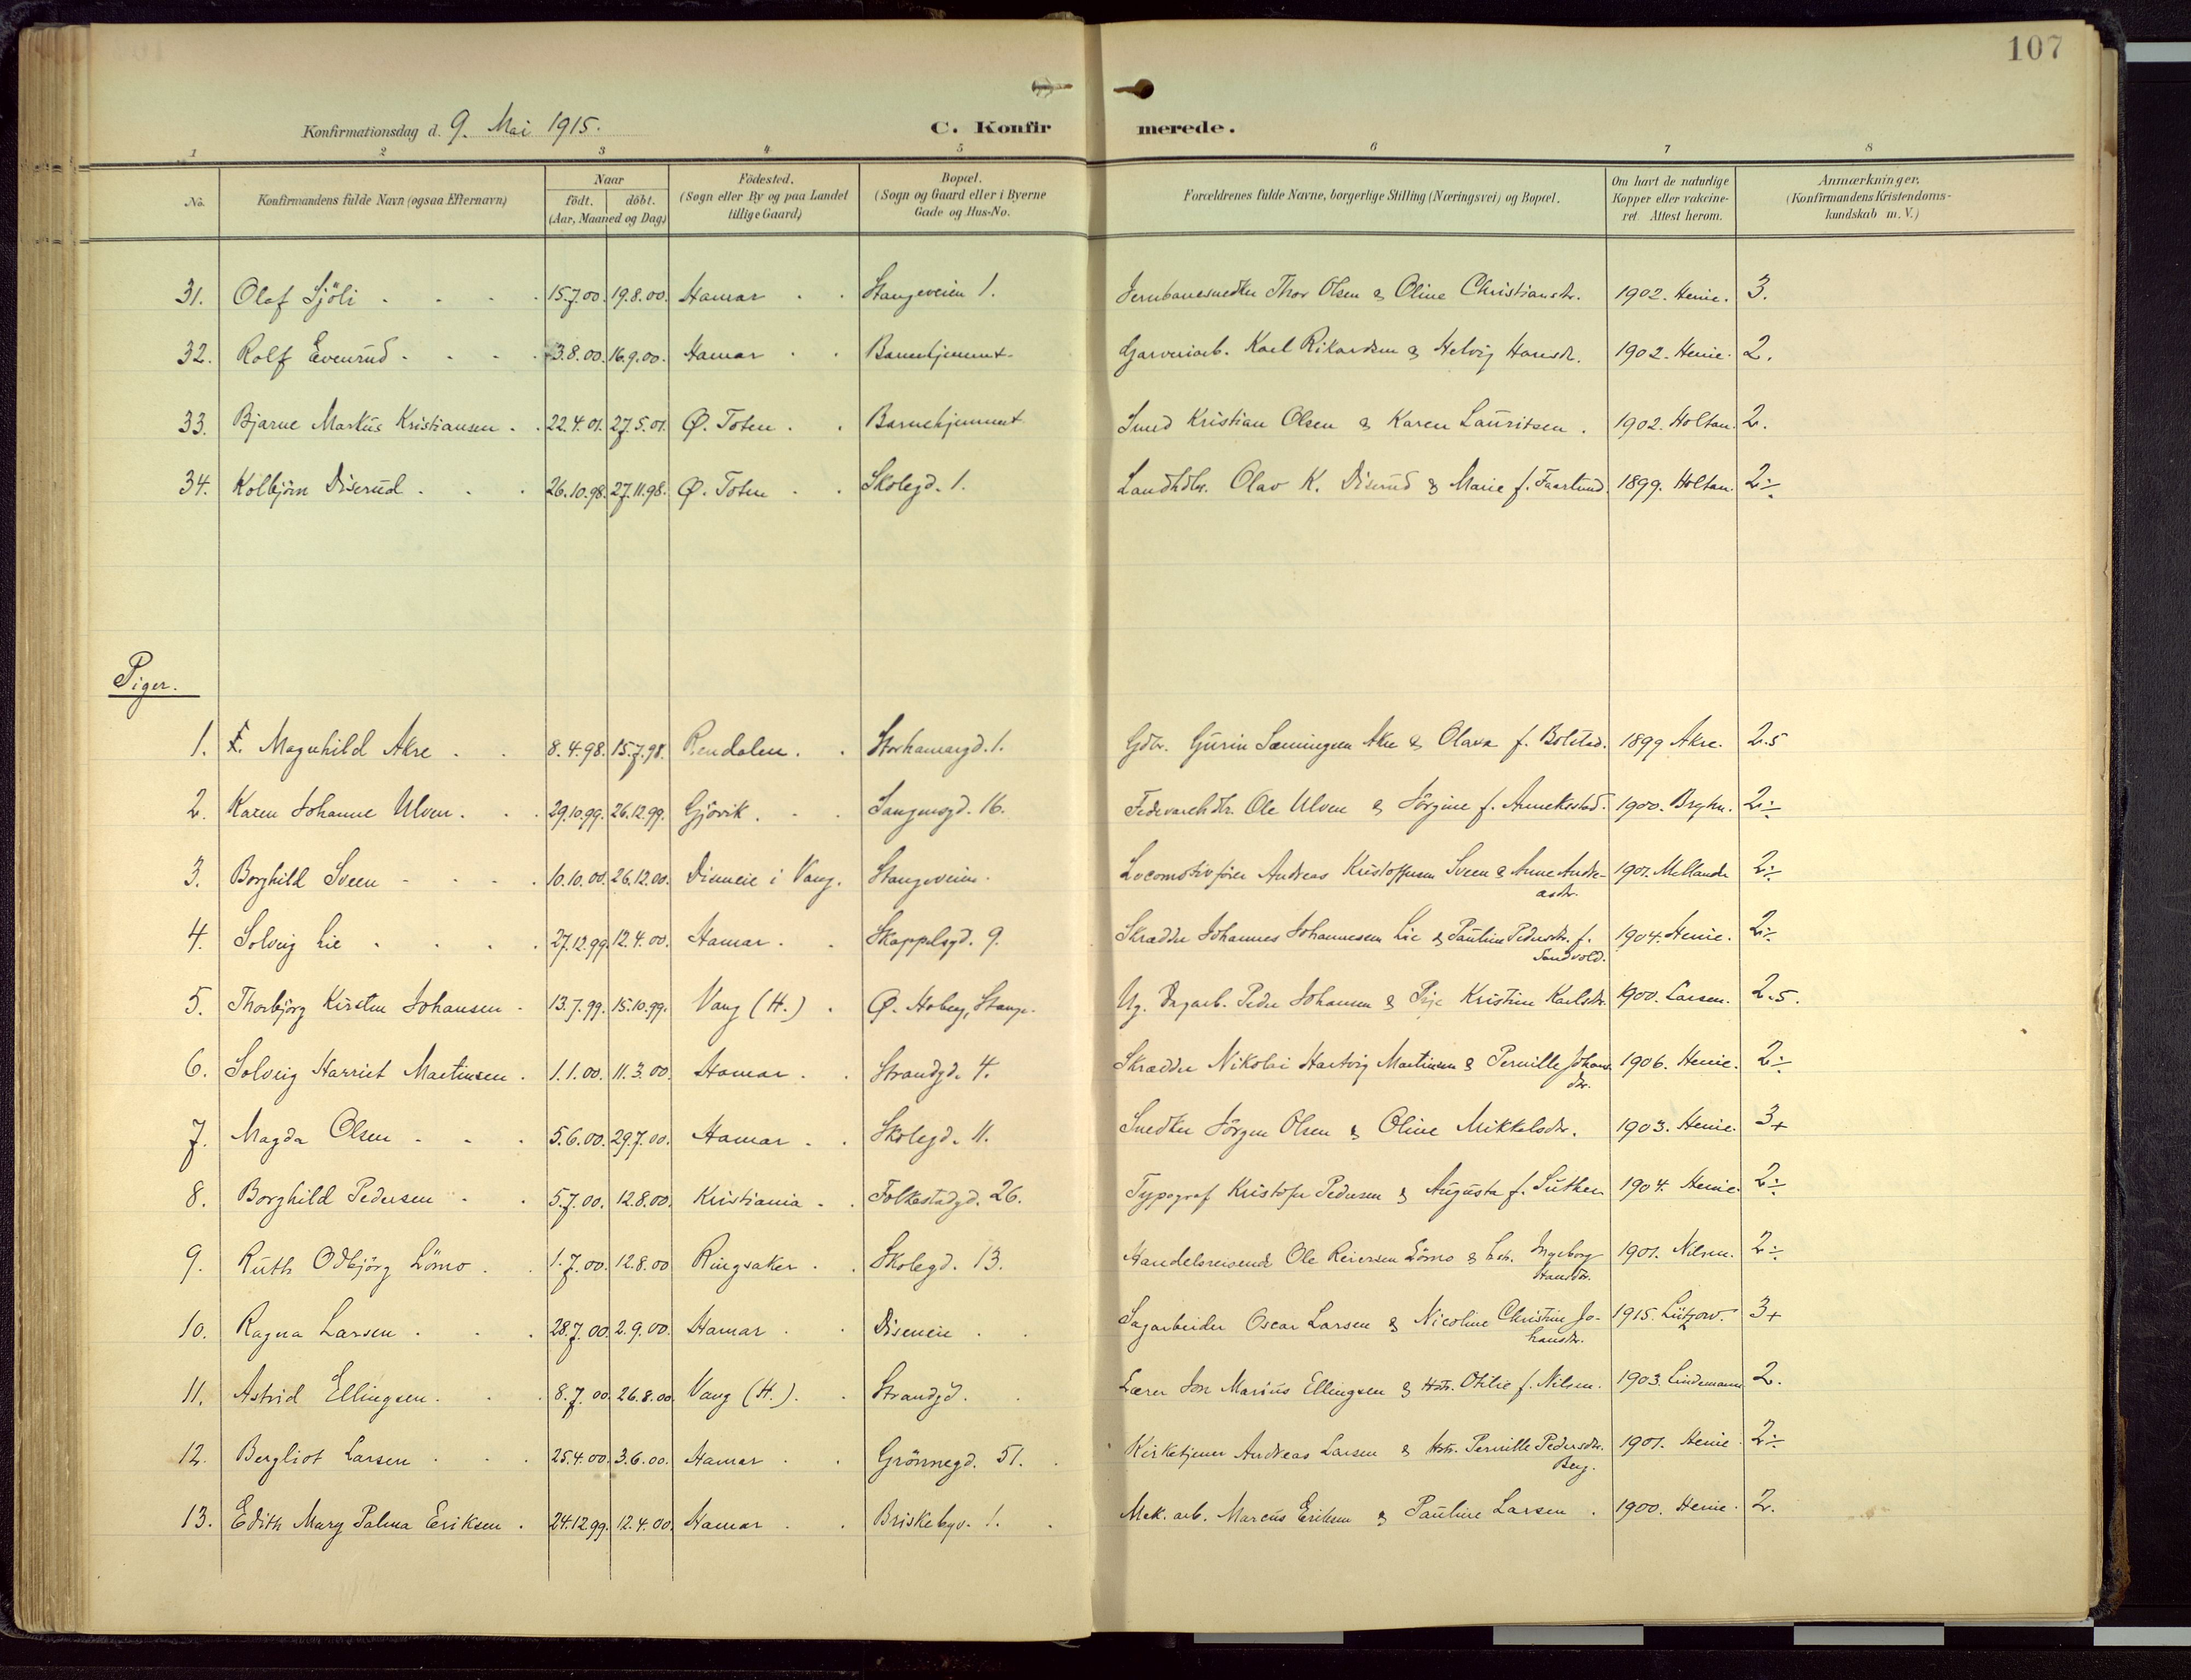 107
Konfirmationsdag d. 9. Mai 1915.
C. Konfirmerede.
1 2 3 4 5 6 7 8
No.
Konfirmandens fulde Navn (ogsaa Efternavn)
Naar
födt. döbt.
(Aar, Maaned og Dag.)
Födested.
(Sogn eller By og paa Landet
tillige Gaard.)
Bopæl.
(Sogn og Gaard eller i Byerne
Gade og Hus-No.
Forældrenes fulde Navne, borgerlige Stilling (Næringsvei) og Bopæl.
Om havt de naturlige
Kopper eller vakcine-
ret. Attest herom.
Anmærkninger.
(Konfirmandens Kristendoms-
kundskab m. V.)
31. Olaf Sjöli 15.7.00. 19.8.00. Hamar Stangeveien 1. Jernbanesnedker Thor Olsen & Oline Christiansdtr. 1902. Henie. 3.
32. Rolf Evenrud 3.8.00. 16.9.00. Hamar Barnehjemmet Garveriarb. Karl Rikardsen & Helvig Hansdtr. 1902. Henie. 2.
33. Bjarne Markus Kristiansen 22.4.01. 27.5.01. Ø. Toten Barnehjemmet Smed Kristian Olsen & Karen Lauritsen. 1902. Holtan. 2.
34. Kolbjörn Diserud 26.10.98. 27.11.98. Ø. Toten Skolegd. 1. Landhdlr. Olav K. Diserud & Marie f. Faarlund. 1899. Holtan. 2÷
Piger.
1. Magnhild Akre 8.4.98. 15.7.98. Rendalen. Storhamargd. 1. Gdbr. Gurin Sæmingsen Akre & Olava f. Bolstad. 1899 Akre. 2.5
2. Karen Johanne Ulven. 29.10.99. 26.12.99. Gjövik. Vangsvgd. 16. Fedevarehdlr. Ole Ulven & Jörgine f. Annekestad. 1900. Bryhn. 2÷
3. Borghild Sveen 10.10.00. 26.12.00. Diseneie i Vang. Stangeveien. Locomotivförer Andreas Kristoffersen Sveen & Anne Andre-
asdtr. 1901. Mellande 2÷
4. Solveig Lie 27.12.99. 12.4.00. Hamar. Skappelsgd. 9. Skrædder Johannes Johannesen Lie & Pauline Pedersdtr. f.
Sandvold. 1904. Henie. 2÷
5. Thorbjörg Kirsten Johansen 13.7.99. 15.10.99. Vang (H.) Ø. Hoberg, Stange. Ug. Dagarb. Peder Johansen & Pige Kristine Karlsdtr. 1900. Larsen. 2.5.
6. Solveig Harriet Martinsen. 1.1.00. 11.3.00. Hamar. Strandgd. 4. Skrædder Nikolai Hartvig Martinsen & Pernille Johans-
dtr. 1906. Henie. 2÷
7. Magda Olsen 5.6.00. 29.7.00. Hamar. Skolegd. 11. Snedker Jörgen Olsen & Oline Mikkelsdtr. 1903. Henie. 3+
8. Borghild Pedersen 5.7.00. 12.8.00. Kristiania Folkestadgd. 26. Typograf Kristofer Pedersen & Augusta f. Suther. 1904. Henie. 2÷
9. Ruth Odbjörg Lömo. 1.7.00. 12.8.00 Ringsaker Skolegd. 13. Handelsreisende Ole Reiersen Lömo & Ingeborg
Hansdtr. 1901. Nilsen. 2÷
10. Ragna Larsen. 28.7.00. 2.9.00. Hamar Diseneie Sagarbeider Oscar Larsen & Nicoline Christine Jo-
hansdtr. 1915. Lützow. 3+
11. Astrid Ellingsen. 8.7.00. 26.8.00. Vang (H.). Strandgd. Lærer Jon Marius Ellingsen & Hstr. Otilie f. Nilsen. 1903. Lindemann 2.
12. Bergliot Larsen 25.4.00. 3.6.00. Hamar Grönnegd. 51. Kirketjener Andreas Larsen & Hstr. Pernille Pedersdtr.
Berg. 1901. Henie. 2÷
13. Edith Mary Palma Eriksen. 24.12.99. 12.4.00. Hamar Briskebyv. 1. Mek. arb. Marcus Eriksen & Pauline Larsen 1900. Henie. 2.